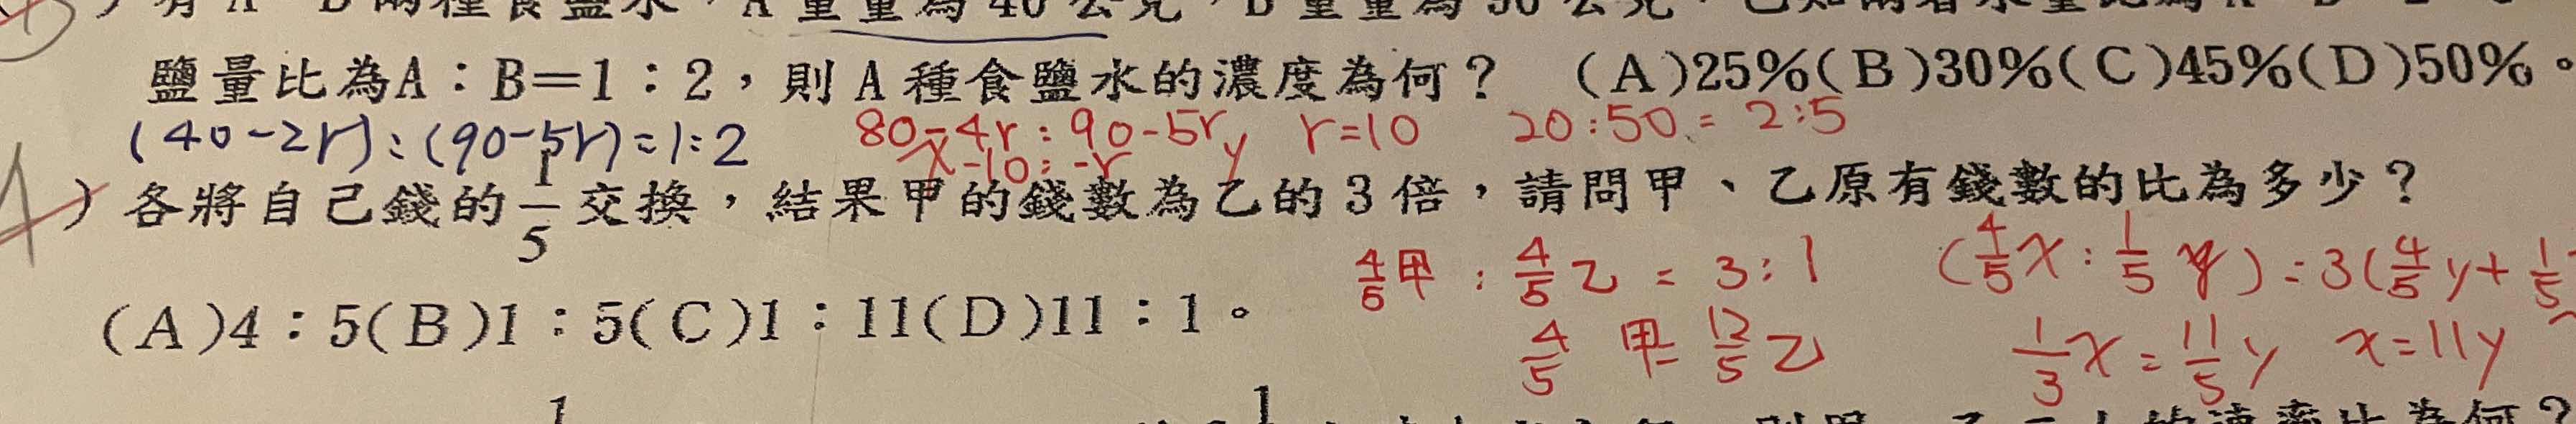 有 A、B 兩種食鹽水，A 重量為 40 公克，B 重量為 90 公克，已知兩者水量比為
鹽量比為A：B＝1：2，則 A 種食鹽水的濃度為何？ (A)25%(B)30%(C)45%(D)50%。
(40-2r):(90-5r)=1:2 80-4r:90-5r r=10 20:50=2:5
x-10=-r y
A ) 各將自己錢的 1/5 交換，結果甲的錢數為乙的 3 倍，請問甲、乙原有錢數的比為多少？
4/5甲:4/5乙=3:1 (4/5x:1/5y)=3(4/5y+1/5
(A)4：5(B)1：5(C)1：11(D)11：1。
4/5甲=12/5乙 1/3x=11/5y x=11y